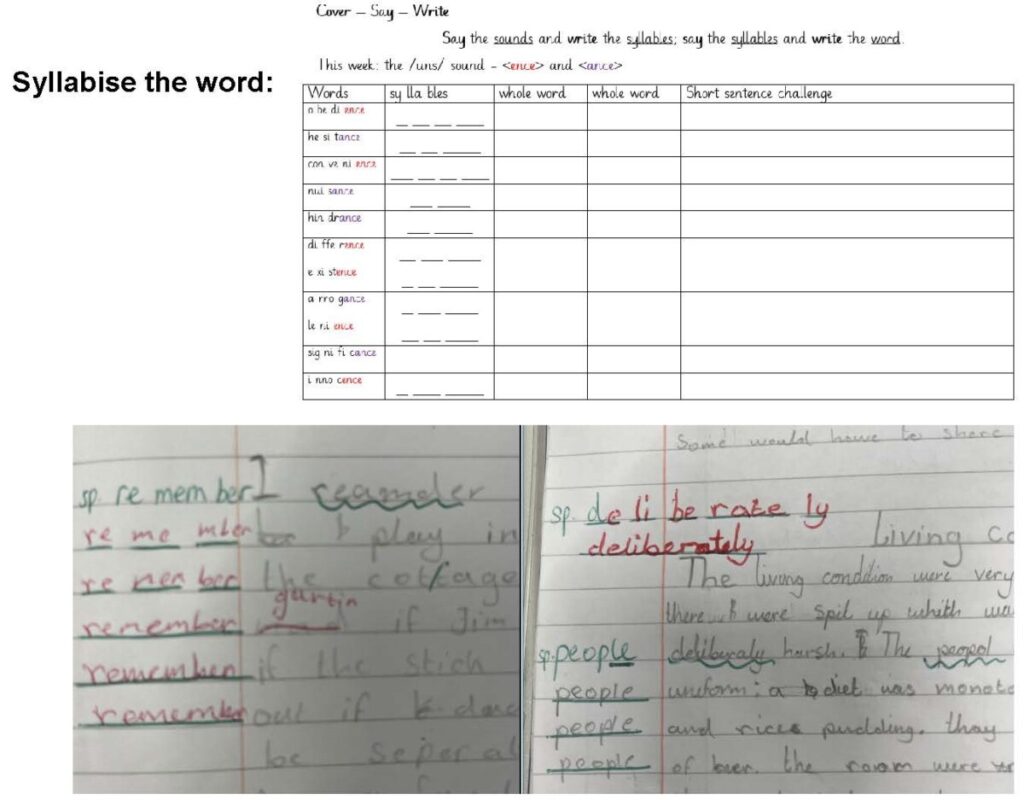 Cover – Say – Write
Say the sounds and write the syllables; say the syllables and write the word.
This week: the /uns/ sound - <ence> and <ance>
Syllabise the word:
Words sy lla bles whole word whole word Short sentence challenge
o be di ence
he si tance
con ve ni ence
nui sance
hin drance
di ffe rence
e xi stence
a rro gance
le ni ence
sig ni fi cance
i nno cence
sp. re mem ber I reamder
re me mber play in
re mem ber the cottage
gartin
remember if Jim
remember if the stich
remember out if
be seperal
Some would have to share
sp. de li be rate ly
deliberately Living co
The living condition were very
there were spil up whith wa
sp. people deliberaly harsh. The peopol
people uniform: a diet was monoto
people and rice pudding. thay
people of beer. the room were